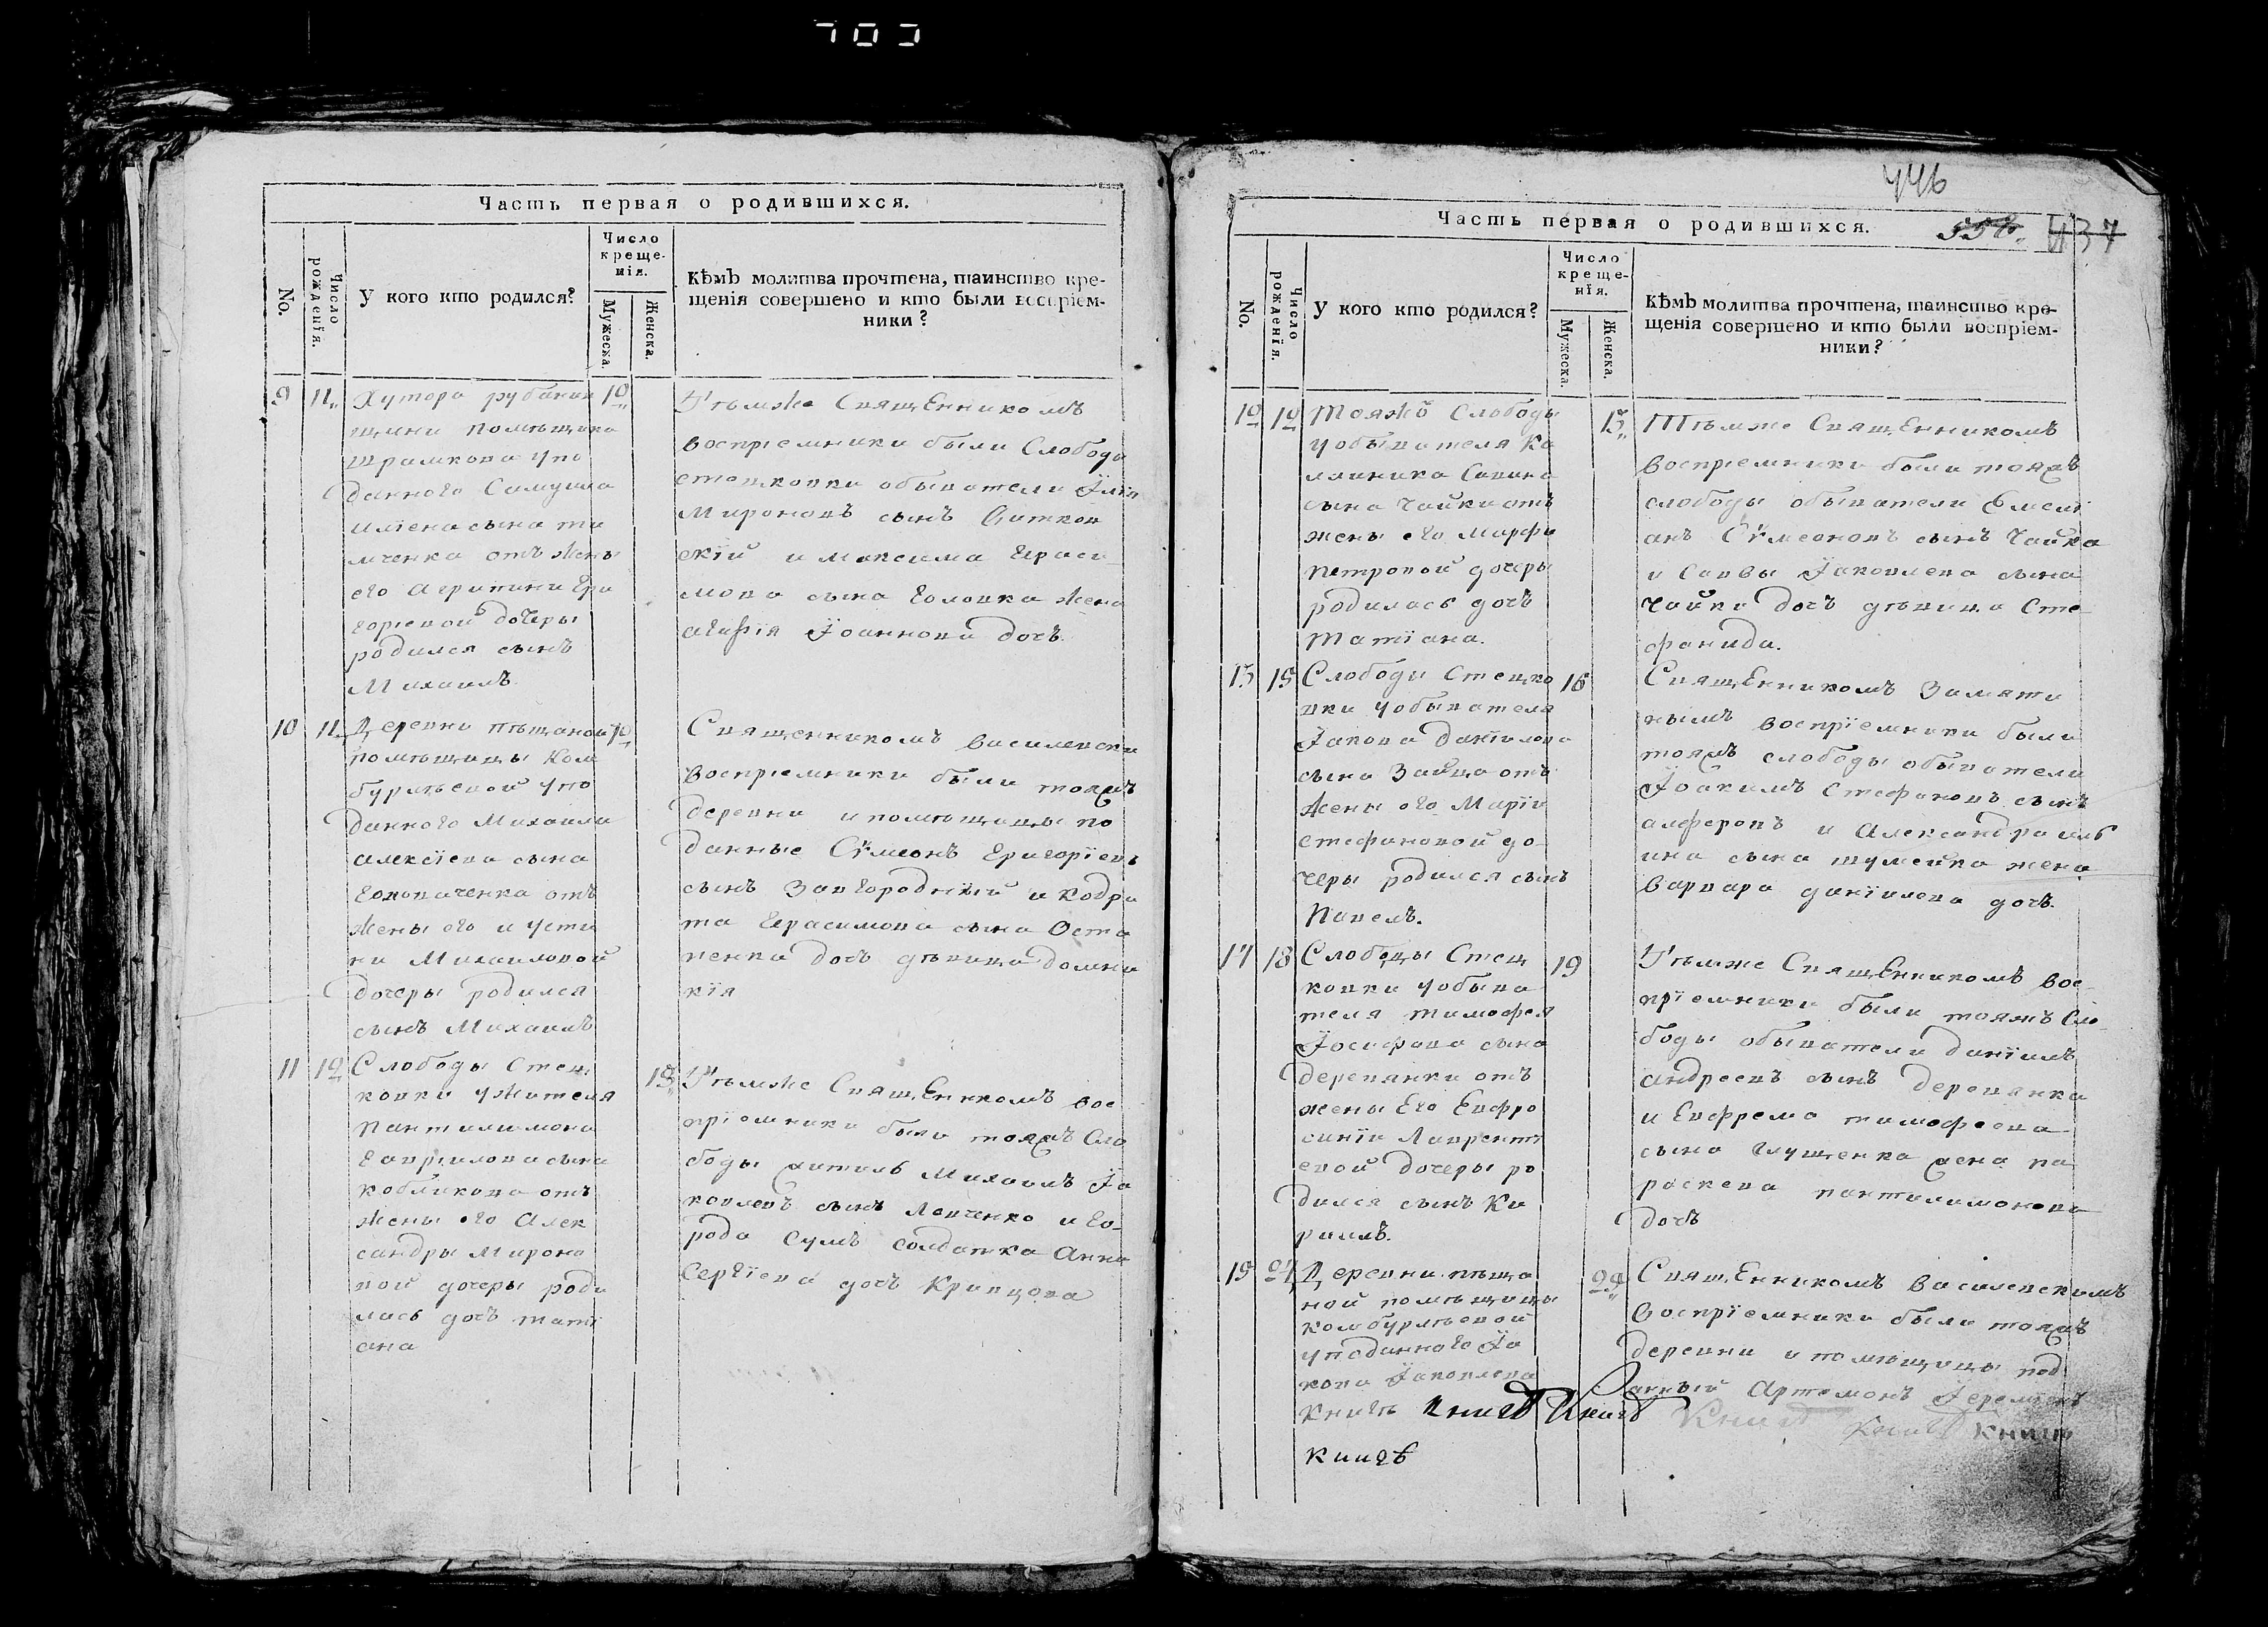 Часть первая о родившихся.
No.
Число рожденїя.
У кого кто родился?
Число
креще-
нія.
Мужеска.
Женска.
Кѣмъ молитва прочтена, таинство кре-
щенія совершено и кто были воспріем-
ники?
9 11 Хутора рубанки 12
щини помѣщика
Шрамкова упо
данного Самуила
илїена сына ти
мченка отъ жены
его агрипини Гри
горіевой дочеры
родился сынъ
Михаилъ
Тѣмже Священникомъ
воспріемники были Слободы
стецковки обыватели
Мироновъ сынъ Витков
скїй и максима Гераси
мова сына Головка жена
агафїя Їоаннова дочь
10 11 Деревни пѣщаной 12
помѣщицы Ком
бурлѣевой упо
данного Михаила
алексїева сына
отъ
жены его иусти
ни Михаиловой
дочеры родился
сынъ Михаилъ
Священникомъ василевски
воспріемники были тояжъ
деревни и помѣщицы по
данные Сѵмеонъ Григорїевъ
сынъ Завгородный и кодра
та Герасимова сына Оста
пенка дочь дѣвица домни
кїя
11 12 Слободы Стец
ковки ужителя
пантилимона
Гаврїилова сына
кобликова отъ
жены его Алек
сандры Мироно
вой дочеры роди
лась дочь тати
ана
13 Тѣмже Священикомъ вос
прїемники были тояжъ Сло
боды житель Михаилъ Їа
ковлевъ сынъ Левченко и го
рода Сумъ солдатка Анна
Сергїева дочь Кривцова
446
437
Часть первая о родившихся.
No.
Число рожденїя.
У кого кто родился?
Число
креще-
нїя.
Мужеска.
Женска.
Кѣмъ молитва прочтена, таинство кре-
щенія совершено и кто были воспріем-
ники?
12 12 Тояжъ Слободы
уобывателя Ка
линика Савина
сына Чайки отъ
жены его Марфы
петровой дочеры
родилась дочь
Татїана.
13 Тѣмже Священникомъ
воспріемники были тояжъ
слободы обыватели Емели
анъ Сѵмеоновъ сынъ Чайка
и Саввы Їаковлева сына
Чайки дочь дѣвица Сте
фанида.
13 15 Слободы Стецко 16
вки уобывателя
Їакова данїилова
сына Зайца отъ
жены его Марїи
стефановой до
черы родился сынъ
Павелъ.
Священникомъ Замяти
нымъ воспрїемники были
тояжъ слободы обыватели
Їоакимъ Стефановъ сынъ
алферовъ и Александра иль
ина сына шумейка жена
варвара данїилева дочь.
14 18 Слободы Стец 19
ковки уобыва
теля тимофея
Їосифова сына
деревянки отъ
жены Его Евфро
синїи Лаврентї
евой дочеры ро
дился сынъ Ки
рилъ.
Тѣмже Священникомъ вос
прїемники были тояжъ Сло
боды обыватели данїилъ
андреевъ сынъ деревянка
и Евфрема тимофеева
сына глущенка жена па
раскева пантилимонова
дочь
15 24 Деревни пѣща
ной помѣщицы
комбурлѣевой
уподанного Їа
кова Їаковлева
24 Священникомъ василевскимъ
воспрїемники были тояжъ
деревни и помѣщицы под
анный Артемонъ Їеремїевъ
книгѣ книгѣ книгѣ книгѣ книгѣ книгѣ
книгѣ